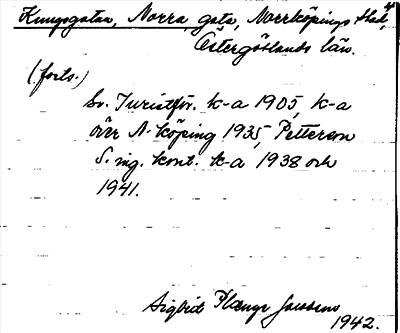 Kungsgatan, Norra, gata, Norrköpings stad,
Östergötlands län.
(forts.)
Sv. Turistför. k-a 1905, k-a
över N-köping 1935, Petterson
S. ing. kont. k-a 1938 och
1941.
Sigbrit Plænge Jacobson
1942.